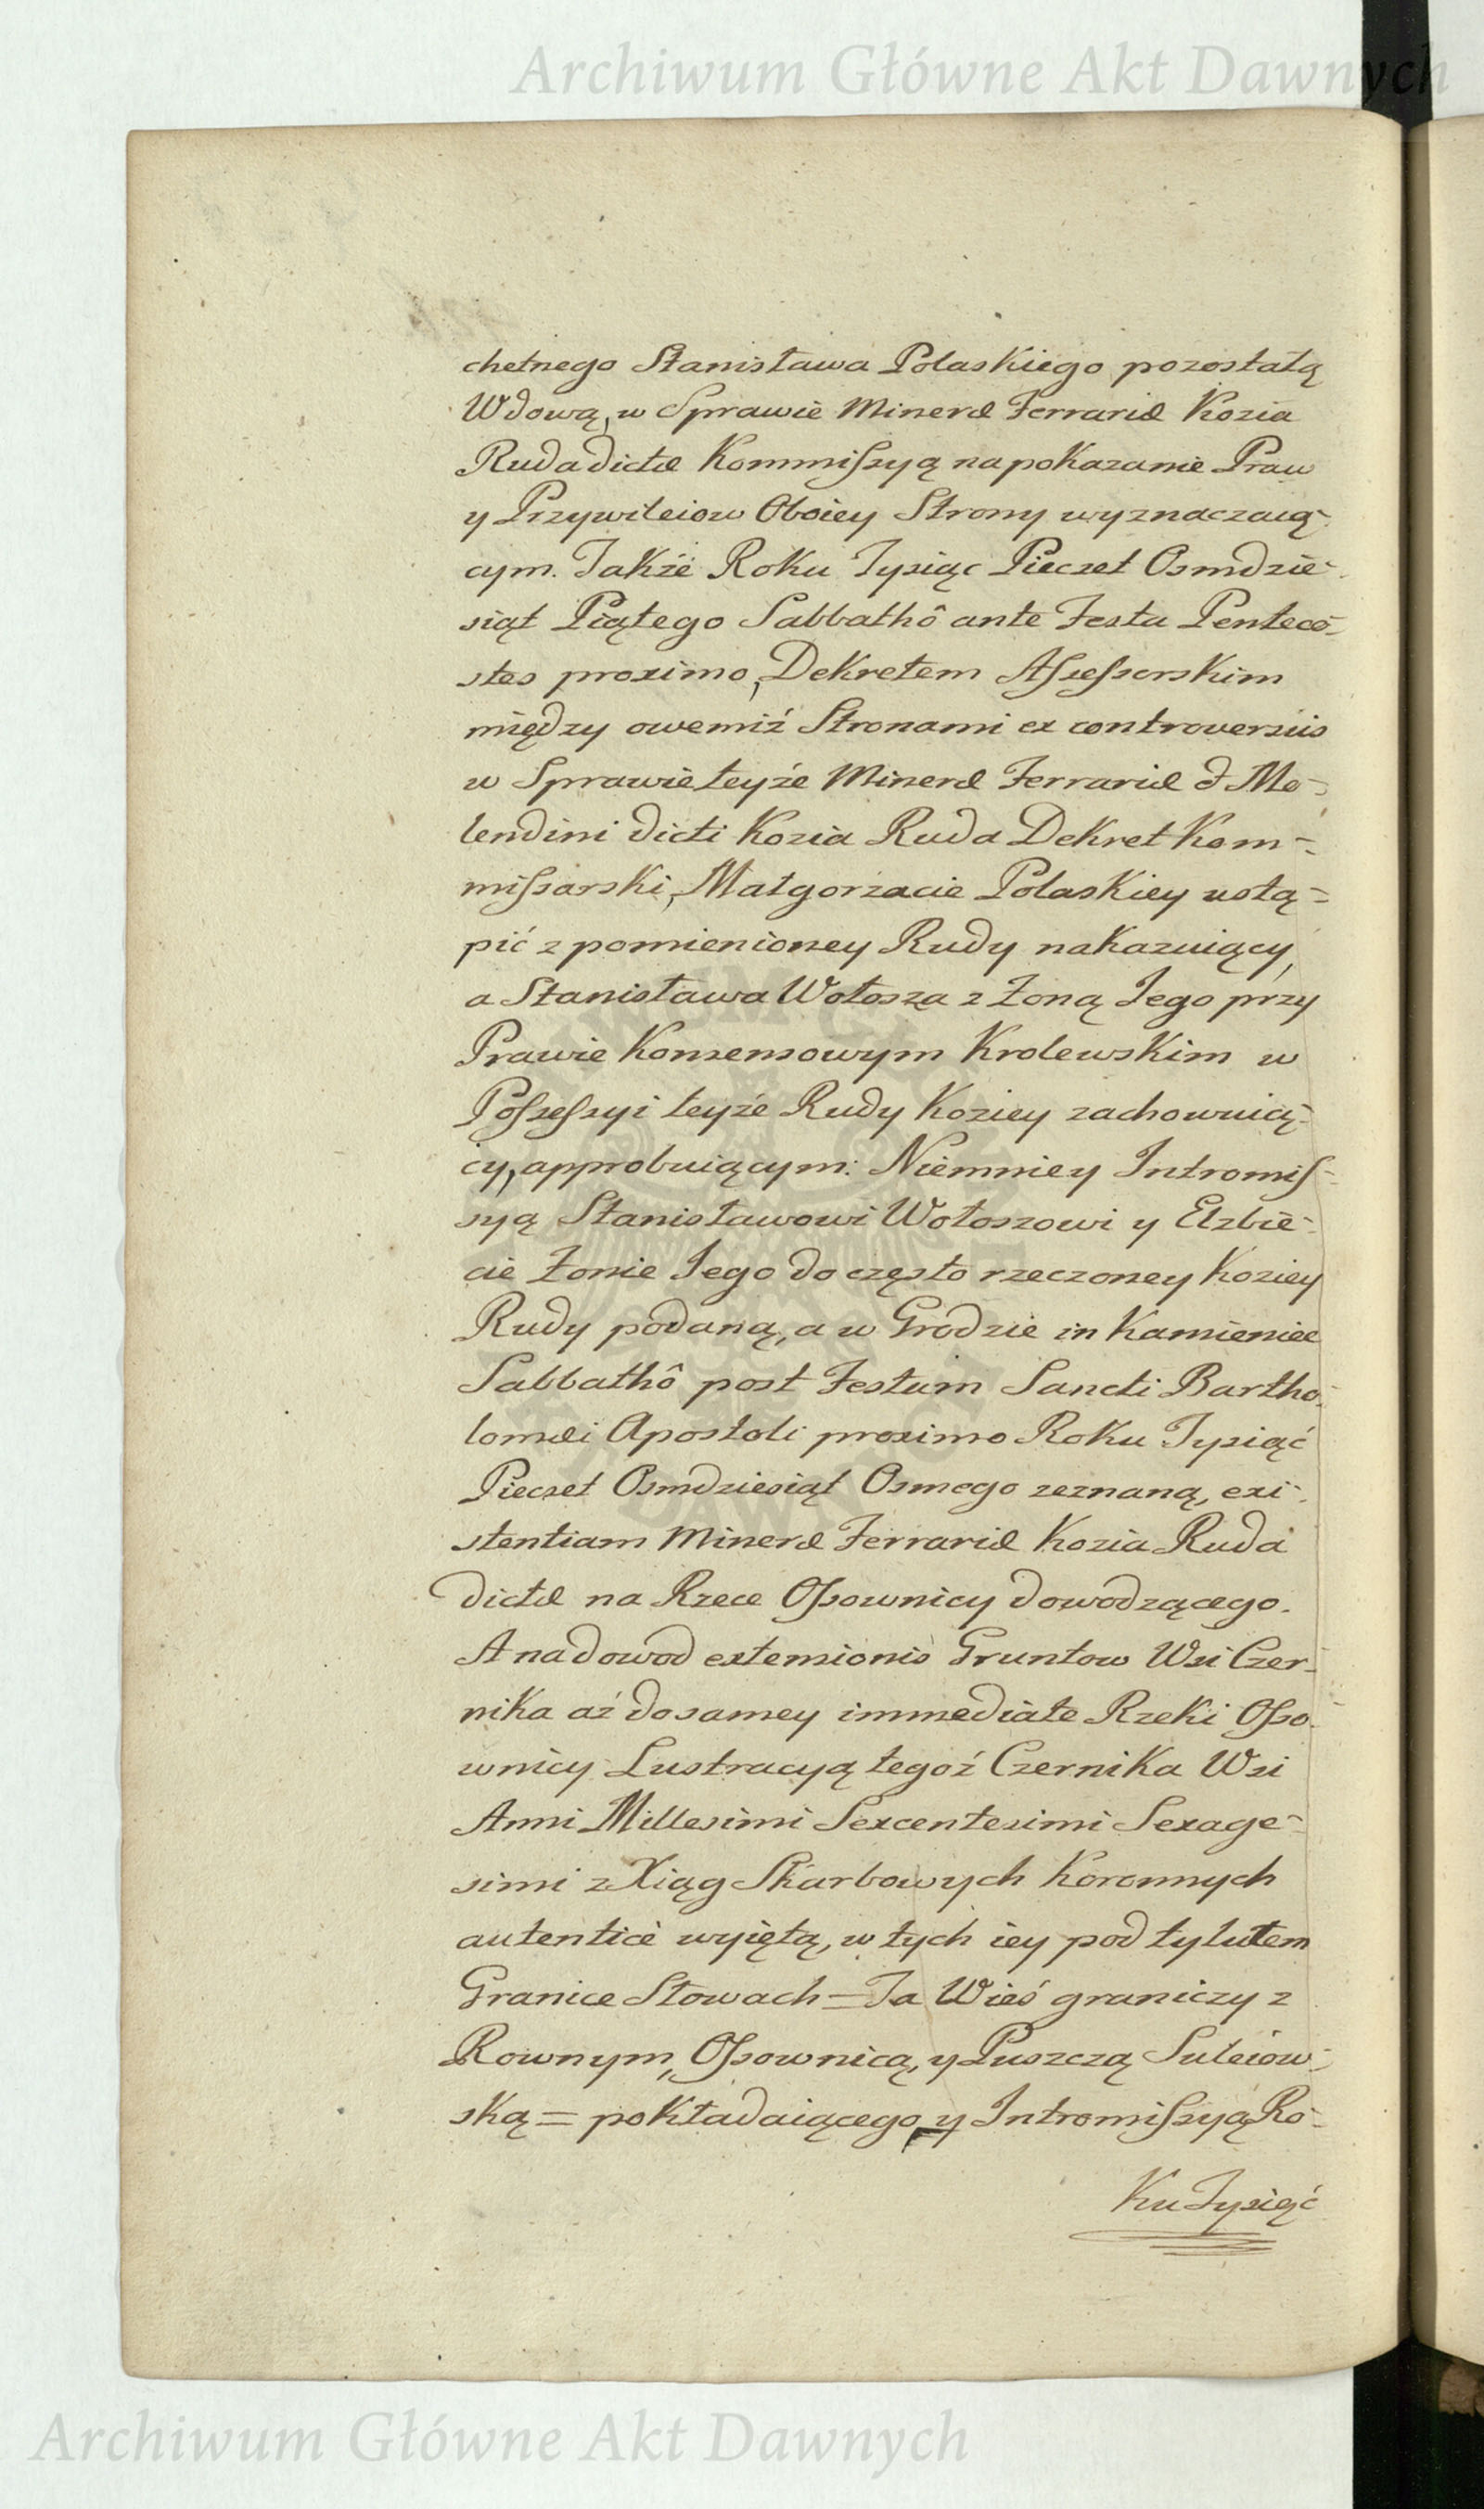 Archiwum Główne Akt Dawnych
chetnego Stanisława Polaskiego pozostałą
Wdową, w Sprawie Mineræ Ferrariæ Kozia
Ruda dictæ Kommiſsyą na pokazanie Praw
y Przywileiow Oboiey Strony wyznaczaią-
cym. Także Roku Tysiąc Piecset Osmdzie-
siąt Piątego Sabbathô ante Festa Penteco-
stes proximo, Dekretem Aſseſsorskim
między owemiż Stronami ex controversiis
w Sprawie teyże Mineræ Ferrariæ & Mo-
lendini dicti Kozia Ruda Dekret Kom-
miſsarski, Małgorzacie Polaskiey ustą-
pić z pomienioney Rudy nakazuiący,
a Stanisława Wołosza z Żoną Jego przy
Prawie Konsensowym Krolewskim w
Poſseſsyi teyże Rudy Koziey zachowuią-
cy, approbuiącym: Niemniey Intromiſ-
syą Stanisławowi Wołoszowi y Elzbie-
cie Żonie Jego do często rzeczoney Koziey
Rudy podaną, a w Grodzie in Kamieniec
Sabbathô post Festum Sancti Bartho-
lomæi Apostoli proximo Roku Tysiąć
Piecset Osmdziesiąt Osmego zeznaną, exi-
stentiam Mineræ Ferrariæ Kozia Ruda
dictæ na Rzece Oſsownicy dowodzącego.
A na dowod extensionis Gruntow Wsi Czer-
nika aż do samey immediate Rzeki Oſso-
wnicy Lustracyą tegoż Czernika Wsi
Anni Millesimi Sexcentesimi Sexage-
simi z Xiąg Skarbowych Koronnych
autenticè wyiętą, w tych iey pod tytułem
Granice Słowach = Ta Wieś graniczy z
Rownym, Oſsownicą, y Puszczą Suleiow-
ską = pokładaiącego, y Intromiſsyą Ro-
Ku Tysiąć
Archiwum Główne Akt Dawnych